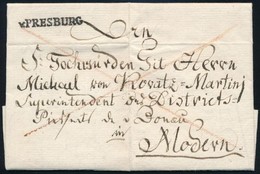 v. PRESBURG
Sr Hochwürden Tit Herrn
Michael von Kovatz-Martinj
Superintendent des Districts
dis der Donau
in
Modern.